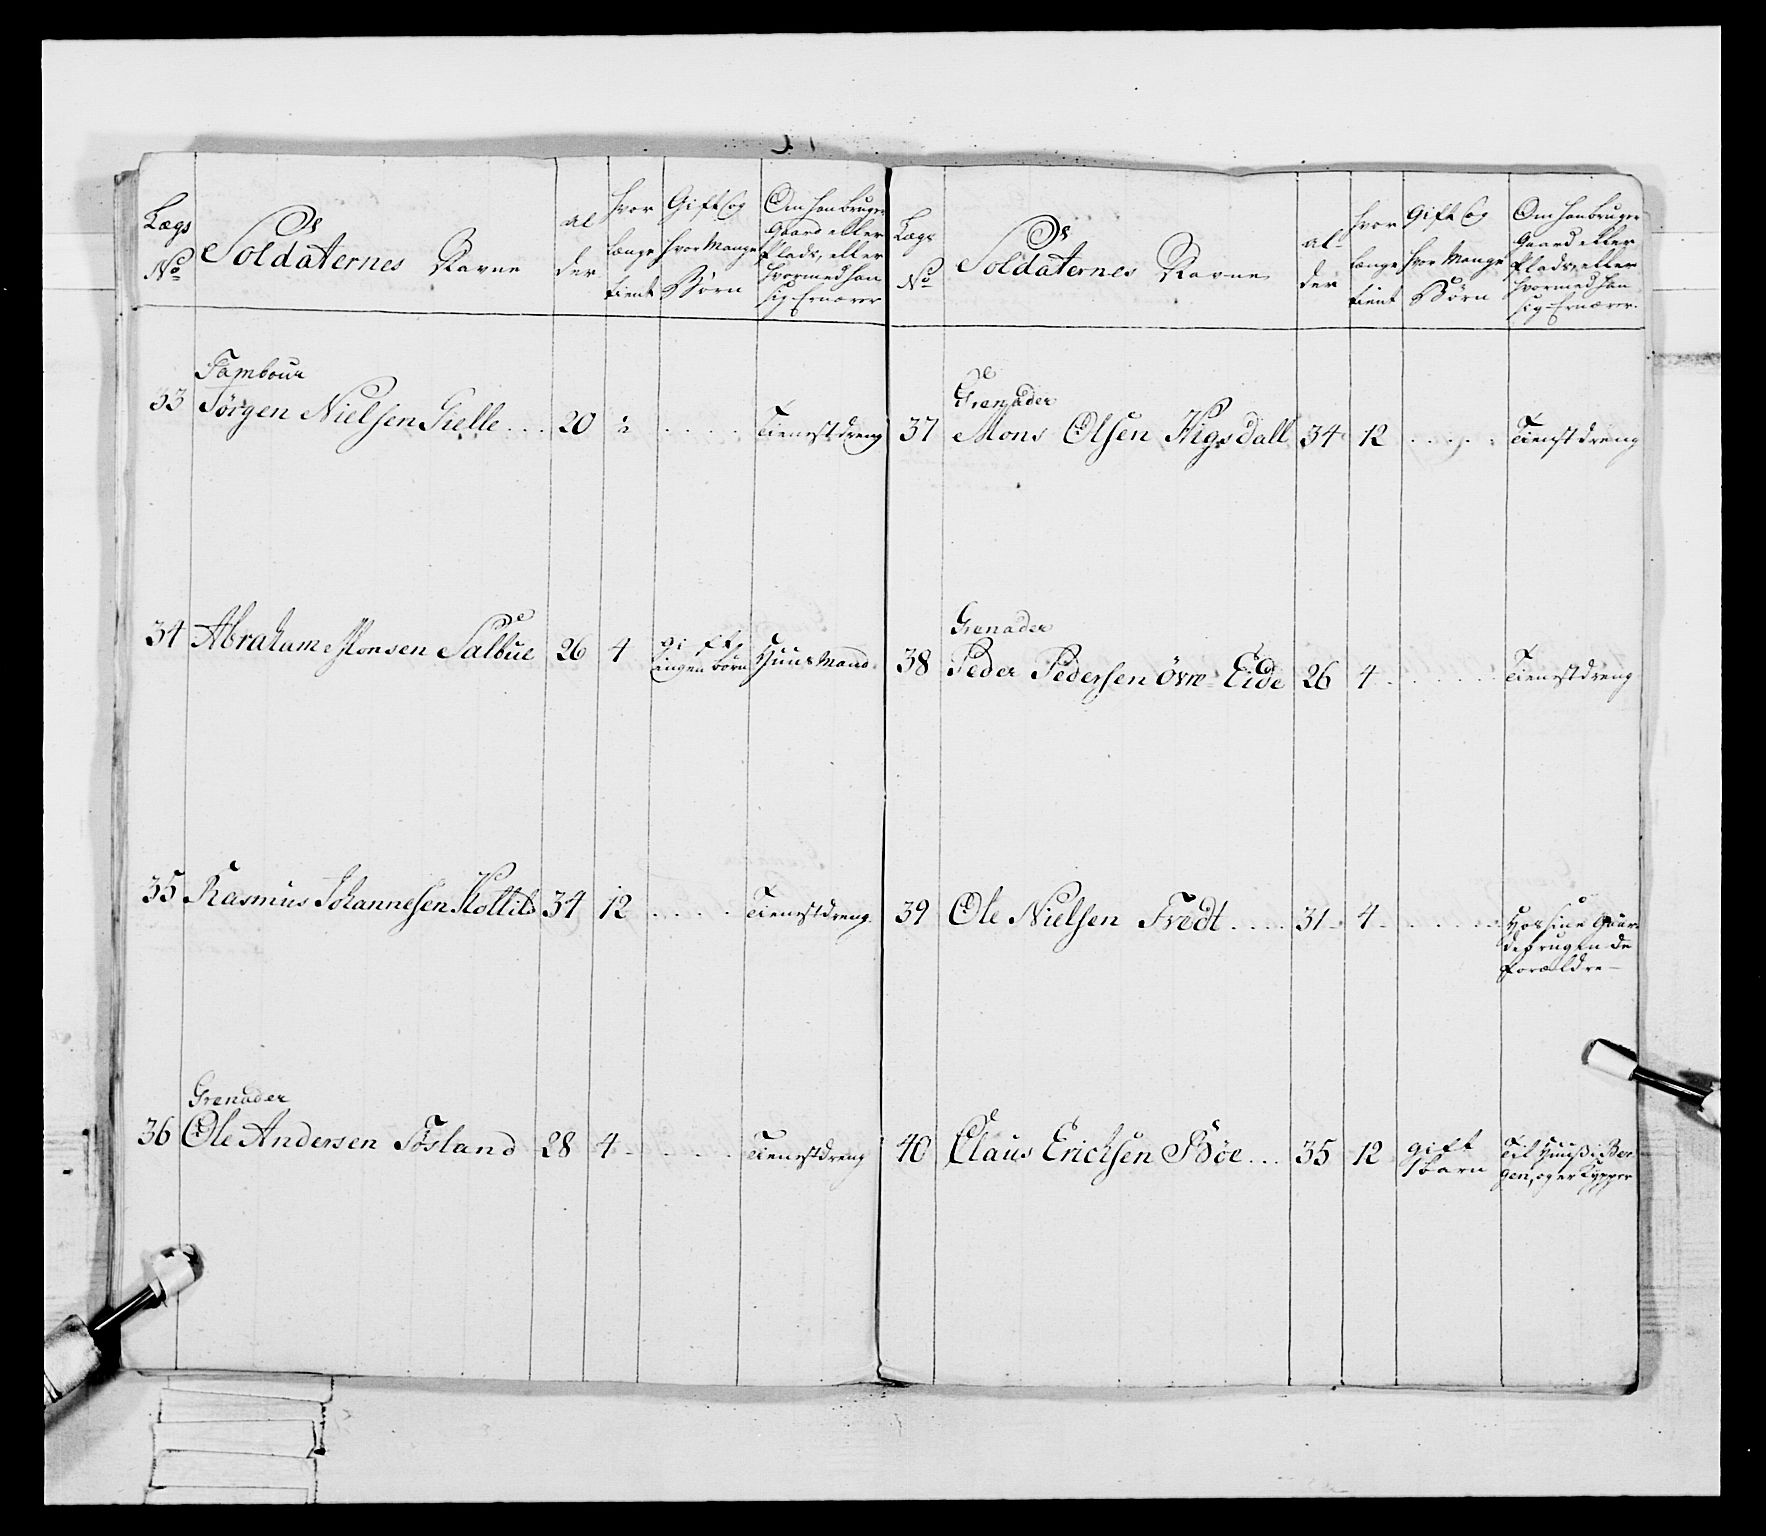 Lægs
No
Soldaternes Navne
Al
der
hvor
længe
tient
Gift og
hvor Mange
Børn
Om han bruger
Gaard eller
Plads, eller
hvormed han
sig Ernærer
33
Tambour
Jørgen Nielsen Gielle
20
2
Tienestdreng
34
Abraham Monsen Salbue
26
4
gift
ingen børn
Huus Mand
35
Rasmus Johannesen Kottils
34
12
Tienestdreng
36
Grenader
Ole Andersen Tøsland
28
4
Tienestdreng
Lægs
No
Soldaternes Navne
Al
der
hvor
længe
tient
Gift og
hvor Mange
Børn
Om han bruger
Gaard eller
Plads, eller
hvormed han
sig Ernærer
37
Grenader
Mons Olsen Higsdall
34
12
Tienstdreng
38
Grenader
Peder Pedersen Øvre Eide
26
4
Tienestdreng
39
Ole Nielsen Tvedt
31
4
Hos sine Gaar
debrugende
Forældre
40
Claus Erichsen Bøe
35
12
gift
1 barn
Til Huuss i Ber
gen, og er Kypper